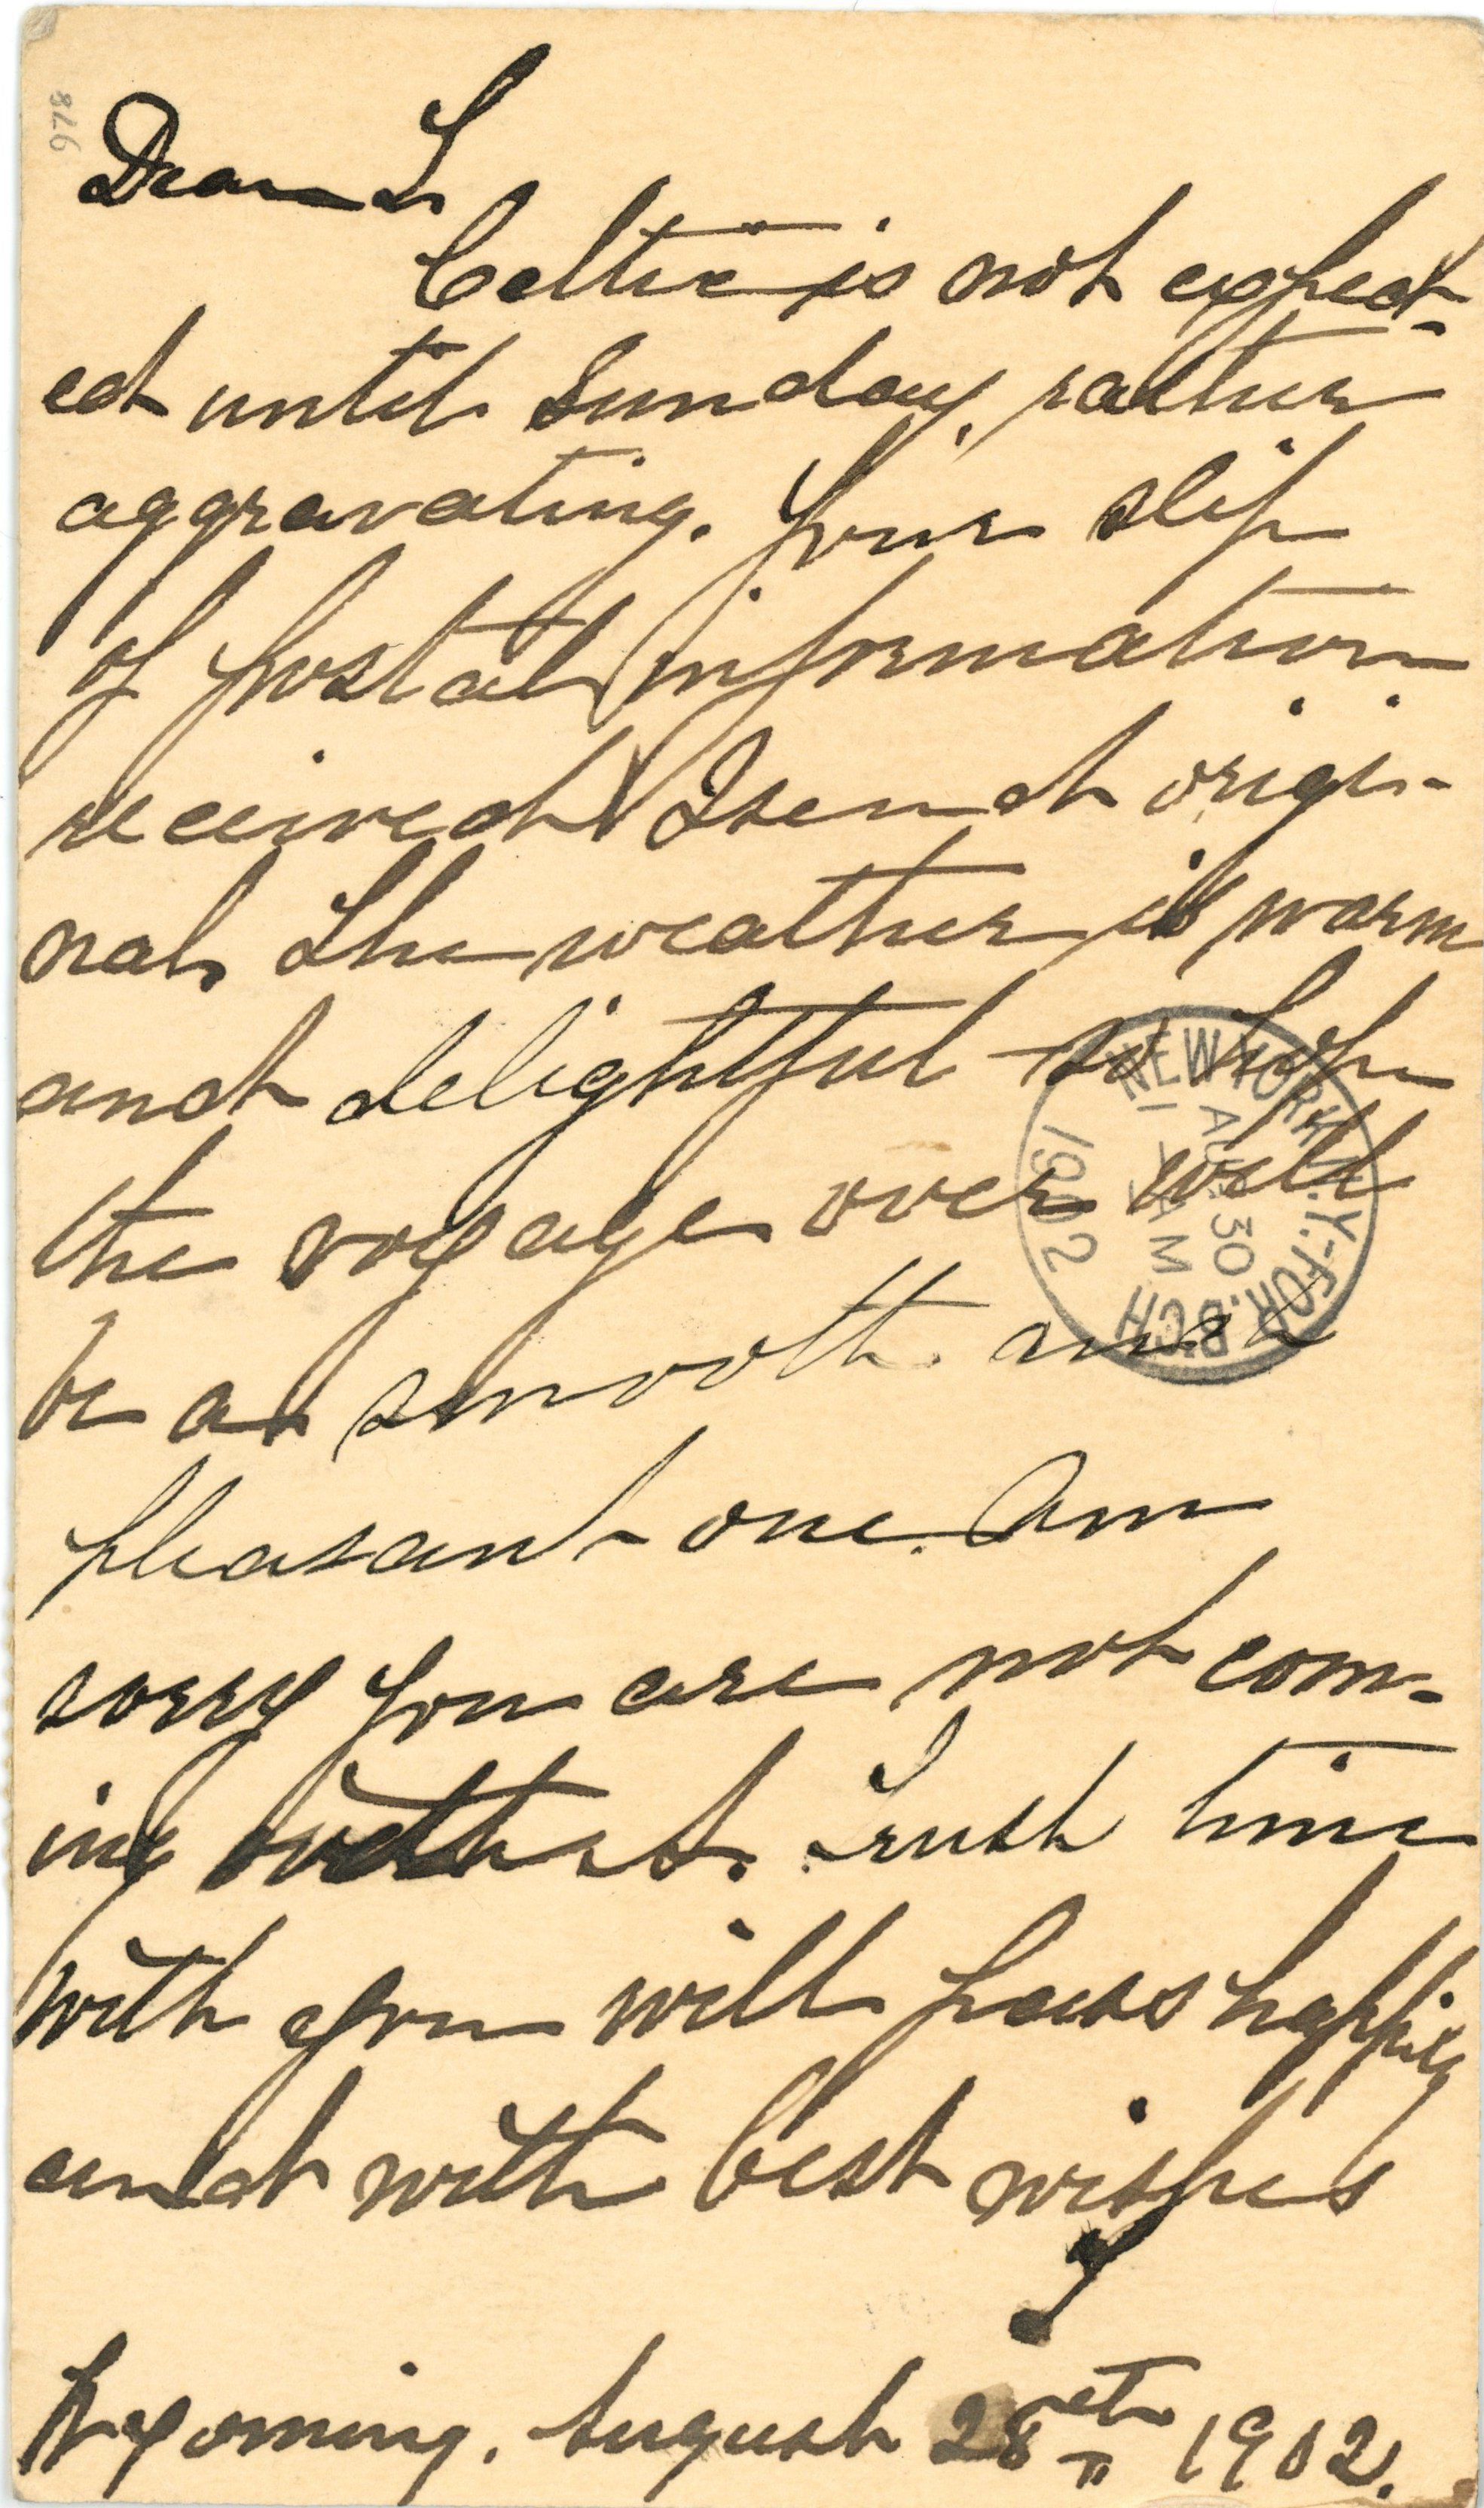 978
Dear L
Celtic is not expect-
ed until Sunday, rather
aggravating. Your slip
of postal information
received I send origi-
nal. The weather is warm
and delightful so hope
the voyage over will
be a smooth and
pleasant one. Am
sorry you are not com-
ing West. Trust time
with you will pass happily
and with best wishes
J
Wyoming. August 28th 1902.
NEW YORK N.Y.-FOR. B'CH
AUG 30
AM
1902